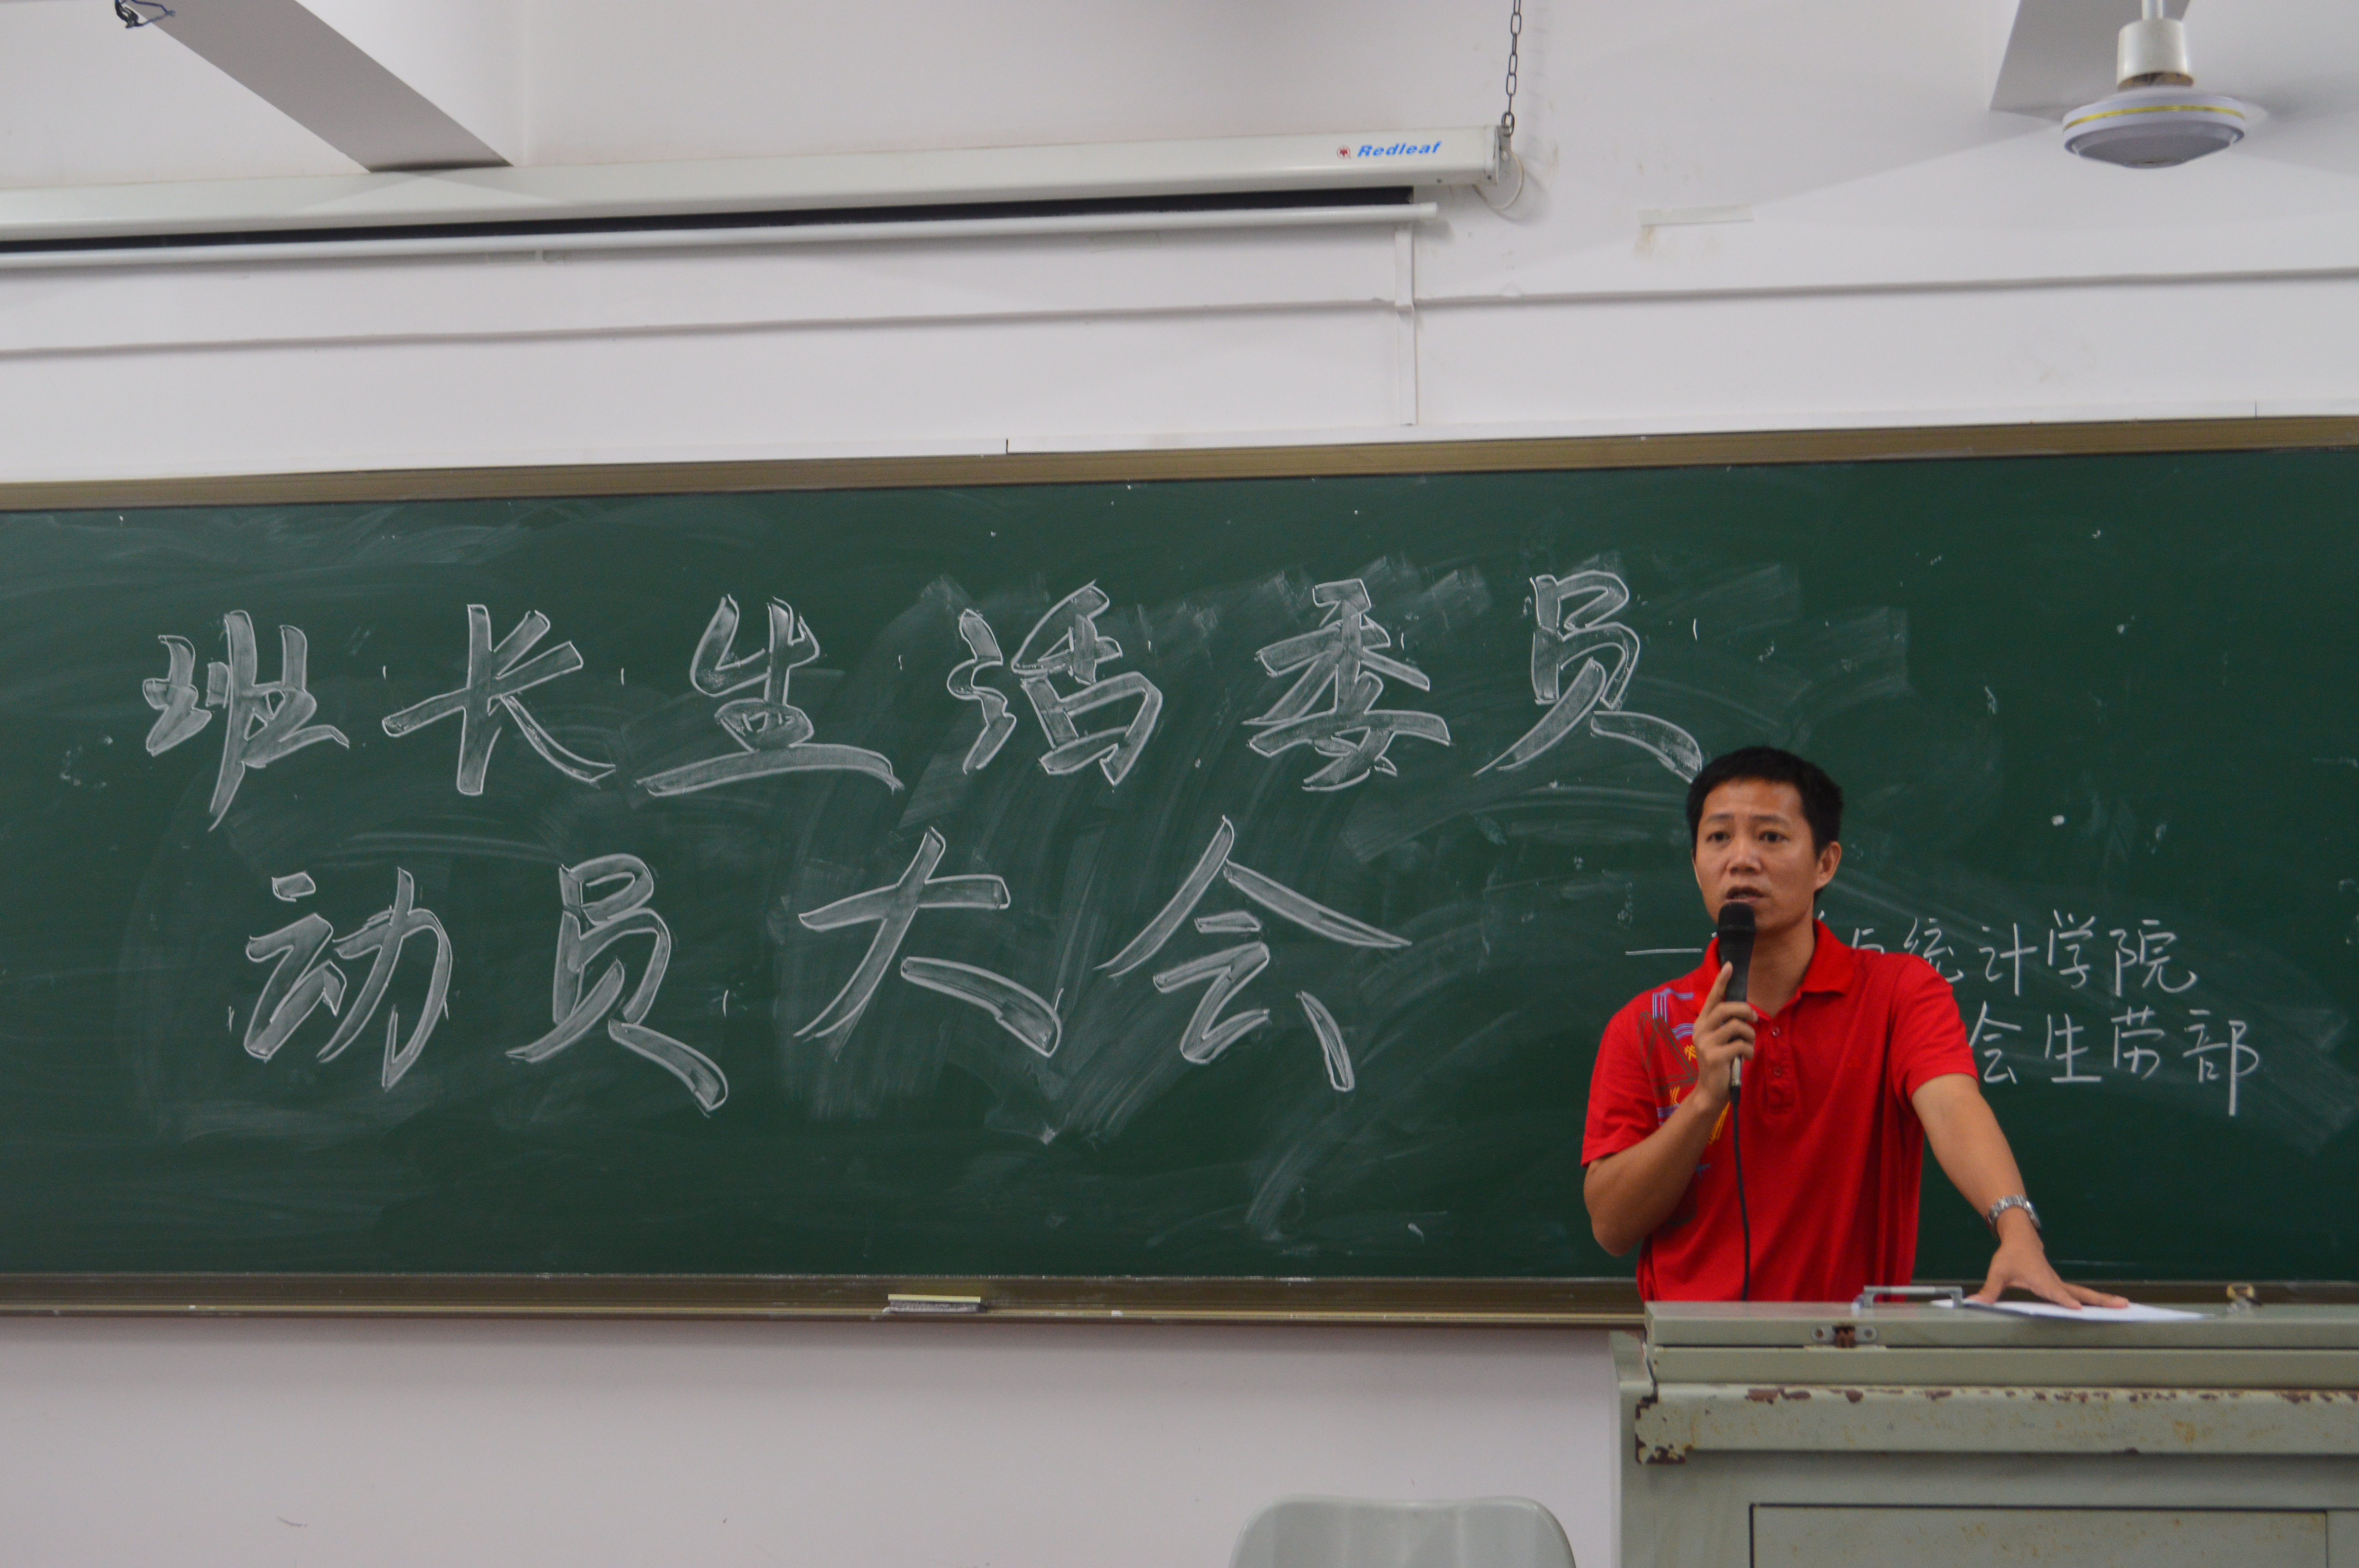 Redleaf
班长生活委员
动员大会
与统计学院
会生劳部